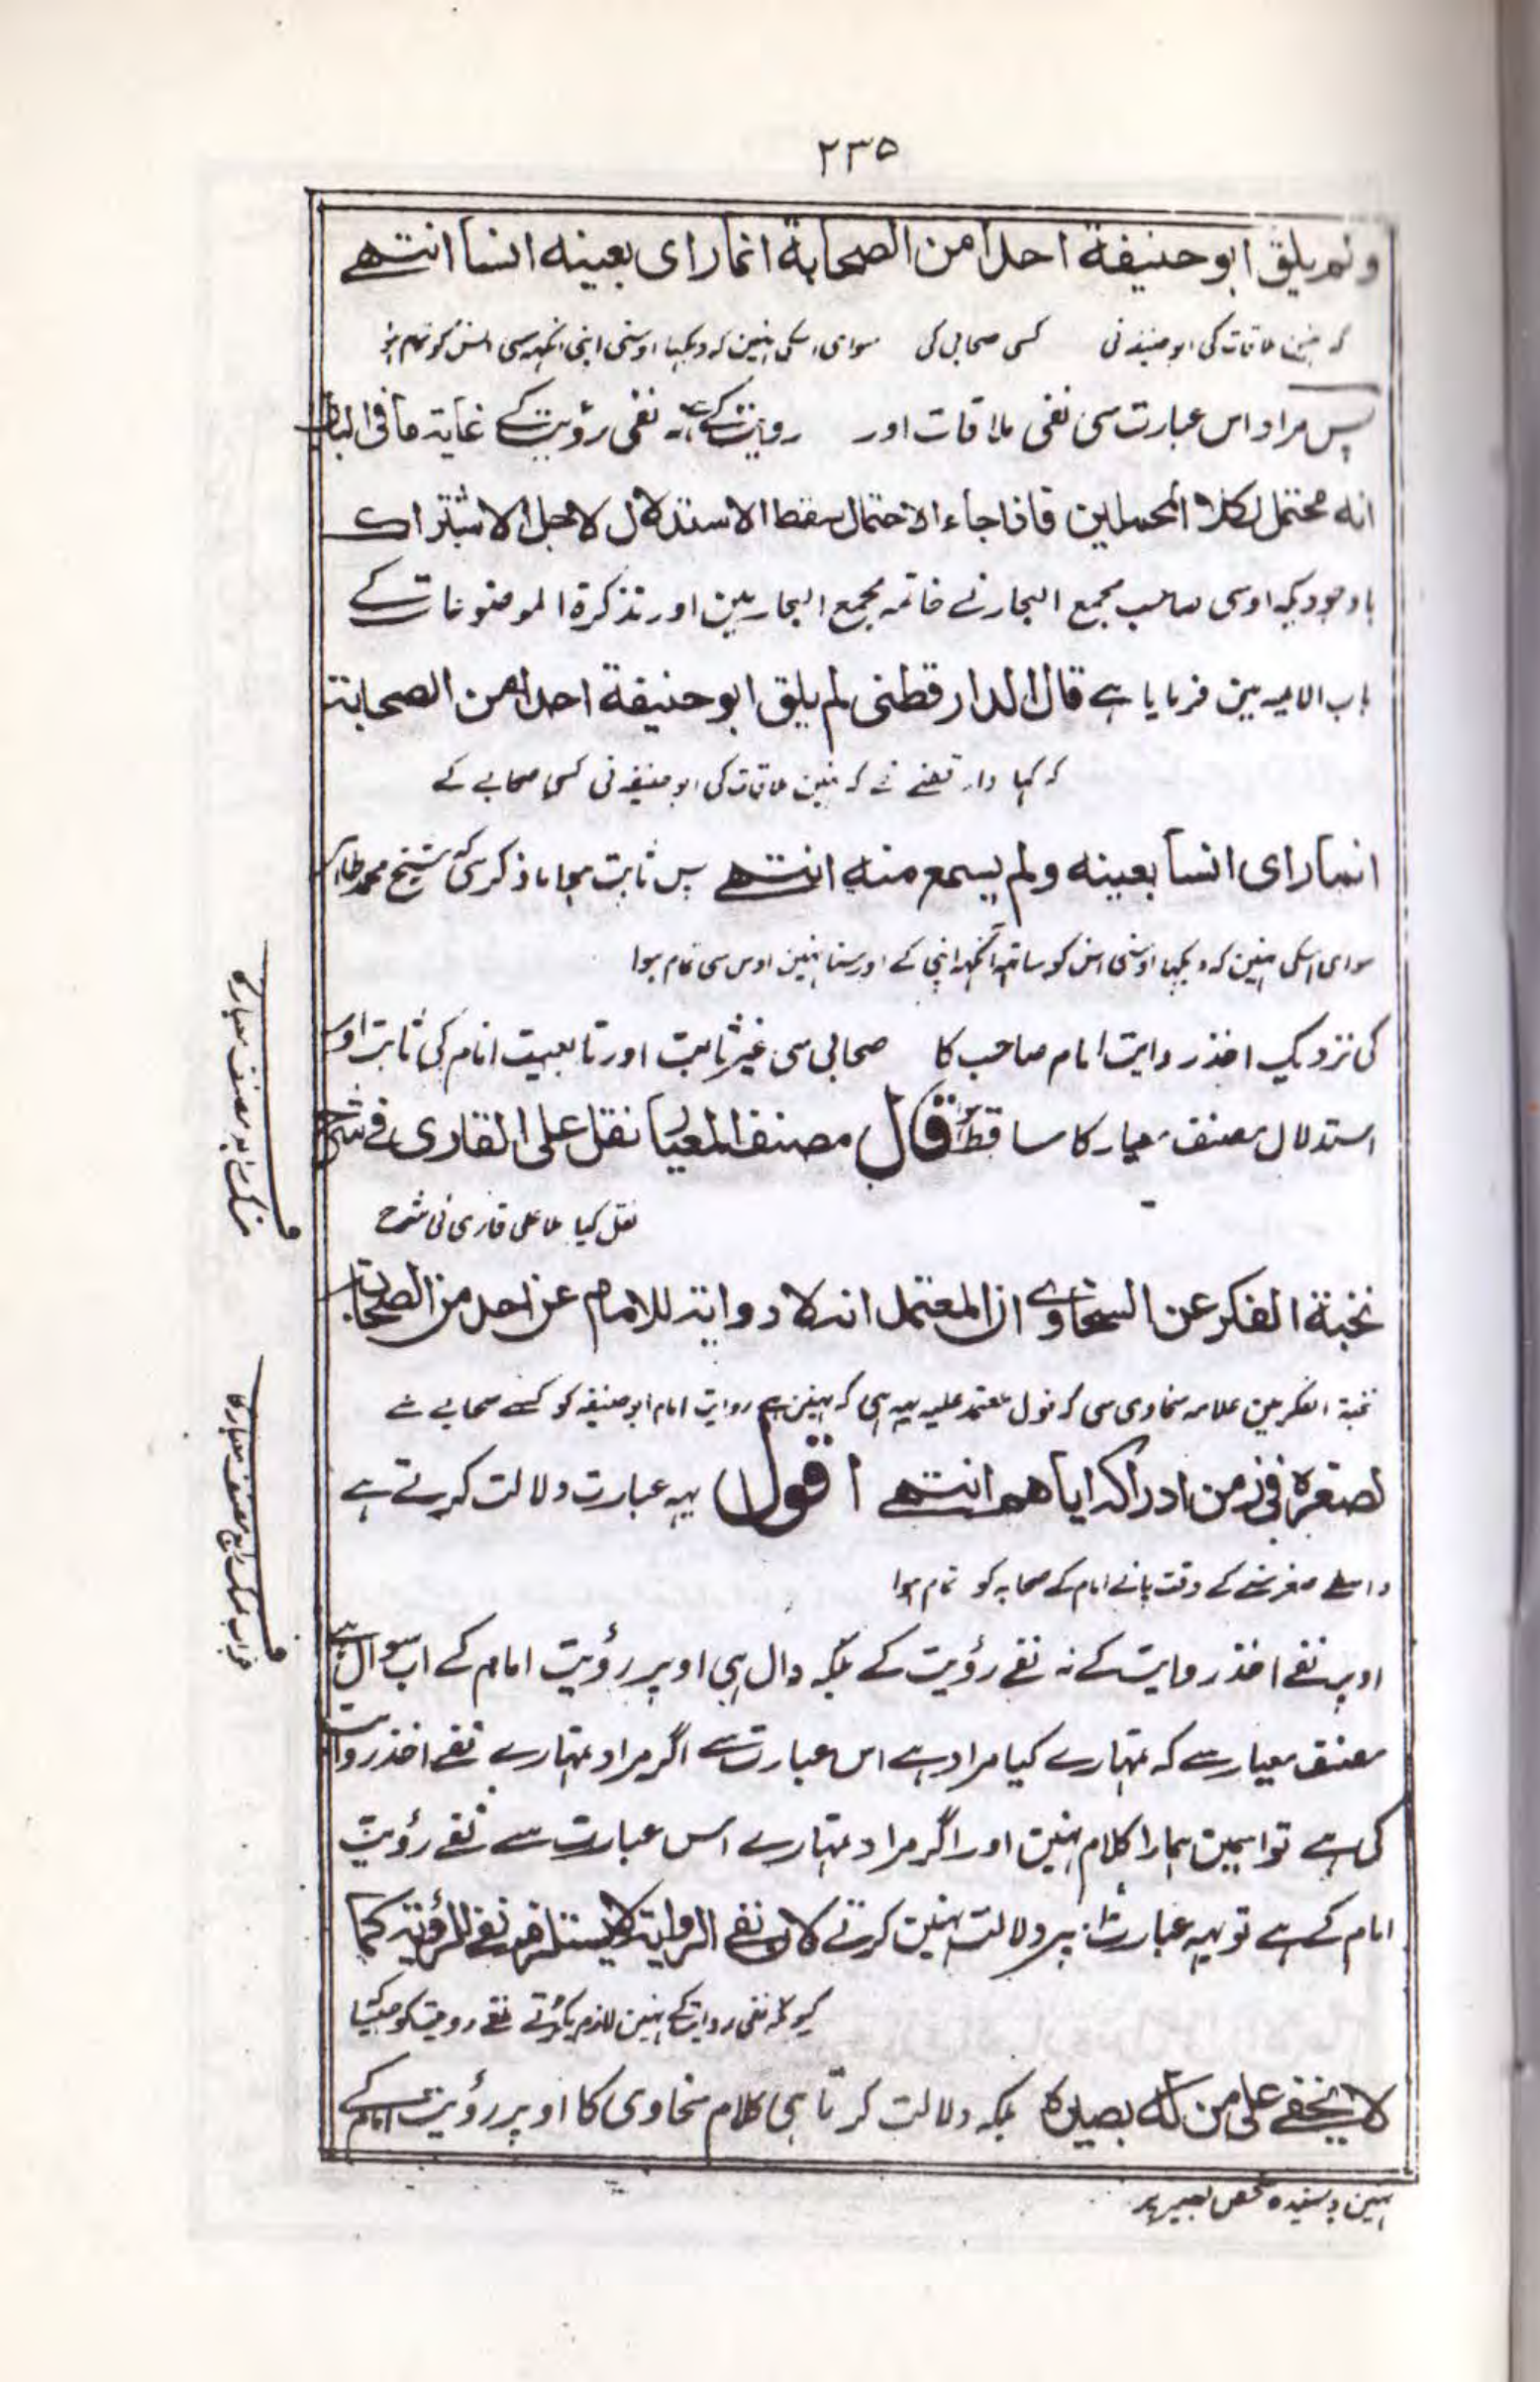 ۲۳۵
ولم يلق ابو حنيفة احدا من الصحابة انما رای بعينه انسا انتہے
کہ نہین ملاقات کی ابو حنیفہ نی کسی صحابی کی سوای اسکی نہین کہ دیکہا اوسنی اپنی آنکہہ سی انس کو تمام ہوا
پس مراد اس عبارت سی نفی ملاقات اور روایت کے ہے نہ نفی رؤیت کے غاية ما فى الباب
انه محتمل لكلا المحملين فاذا جاء الاحتمال سقط الاستدلال لاجل الاشتراك
باوجودیکہ اوسی صاحب مجمع البحار نے خاتمہ مجمع البحار مین اور تذکرۃ الموضوعات کے
باب الائمہ مین فرمایا ہے قال الدارقطنی لم یلق ابو حنيفة احدا من الصحابة
کہ کہا دار قطنے نے کہ نہین ملاقات کی ابو حنیفہ نی کسی صحابے کے
انما رای انسا بعينه ولم يسمع منه انتہے پس ثابت ہوا ذکر سی کہ شیخ محمد طاہر
سوای اسکی نہین کہ دیکہا اوسنی انس کو ساتہہ آنکہہ اپنی کے اور سنا نہین اوس سی تمام ہوا
کی نزدیک اخذ روایت امام صاحب کا صحابی سی غیر ثابت اور تابعیت امام کی ثابت اور
استدلال مصنف معیار کا ساقط ہے قال مصنف المعيار نقل على القارى فى شرح
نقل کیا ملا علی قاری نی شرح
نخبة الفكر عن السخاوے ان المعتمد انه لا رواية للامام عن احد من الصحابة
نخبۃ الفکر مین علامہ سخاوی سی کہ قول معتمد علیہ یہہ ہی کہ نہین ہے روایت امام ابو حنیفہ کو کسے صحابے سے
لصغره فى زمن ادراكه اياهم انتہے اقول یہہ عبارت دلالت کرتے ہے
واسطے صغر سنے کے وقت پانے امام کے صحابہ کو تمام ہوا
اوپر نفے اخذ روایت کے نہ نفے رؤیت کے بلکہ دال ہی اوپر رؤیت امام کے اب سوال ہے
مصنف معیار سے کہ تمہارے کیا مراد ہے اس عبارت سے اگر مراد تمہارے نفے اخذ روایت
کی ہے تو اسمین ہمارا کلام نہین اور اگر مراد تمہارے اس عبارت سے نفے رؤیت
امام کے ہے تو یہہ عبارت اسپر دلالت نہین کرتے لان نفے الرواية لا يستلزم نفے الرؤية كما
کیونکہ نفی روایت کے نہین لازم پکڑتے نفے رویت کو جیسا
لا يخفے على من له بصيرة بلکہ دلالت کرتا ہی کلام سخاوی کا اوپر رؤیت امام کے
نہین پوشیدہ شخص بصیر پر
تمسک رابع مصنف معیار کا
جواب تمسک رابع مصنف معیار کا